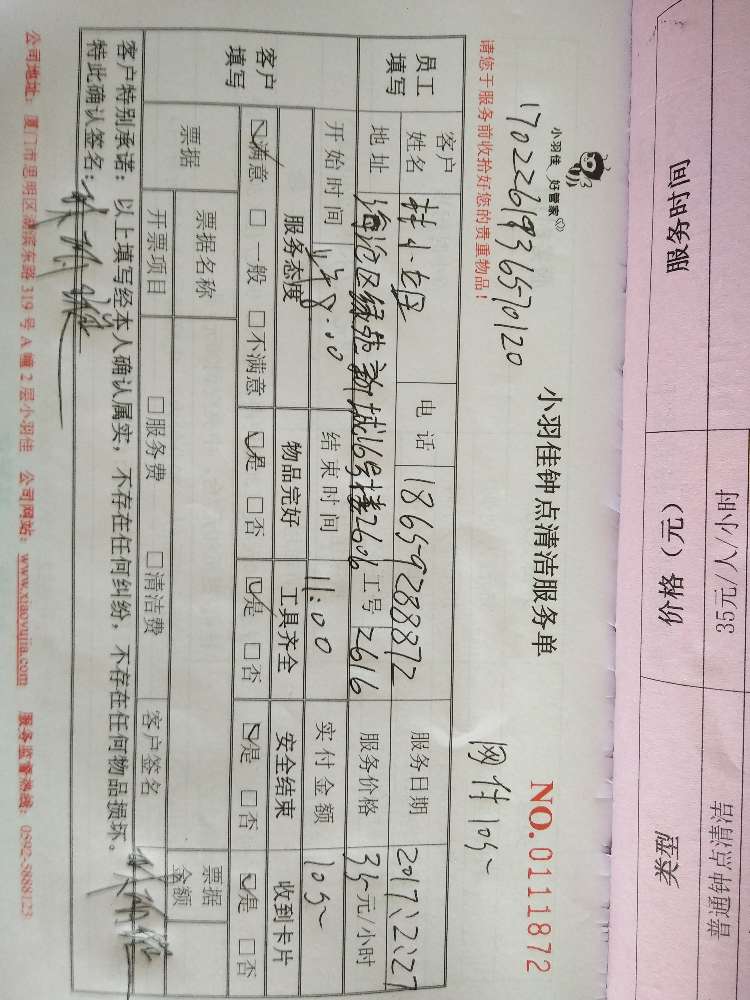 服务时间 价格（元） 类型
35元/人/小时 普通钟点清洁
小羽佳 好管家
小羽佳钟点清洁服务单
NO.0111872
1702261936570120
网付105~
请您于服务前收拾好您的贵重物品！
员工填写
客户姓名 林小姐 电话 18659288872 服务日期 2017.2.27
地址 海沧区绿苑新城16号楼2606 工号 2616 服务价格 35元/小时
客户填写
开始时间 8:00 结束时间 11:00 实付金额 105~
服务态度 物品完好 工具齐全 安全结束 收到卡片
☑满意 □一般 □不满意 ☑是 □否 ☑是 □否 ☑是 □否 ☑是 □否
票据 票据名称 □服务费 □清洁费 客户签名 票据金额
开票项目
客户特别承诺：以上填写经本人确认属实，不存在任何纠纷，不存在任何物品损坏。
特此确认签名：
公司地址：厦门市思明区湖滨东路319号A幢2层小羽佳 公司网站：www.xiaoyujia.com 服务监督热线：0592-5888123